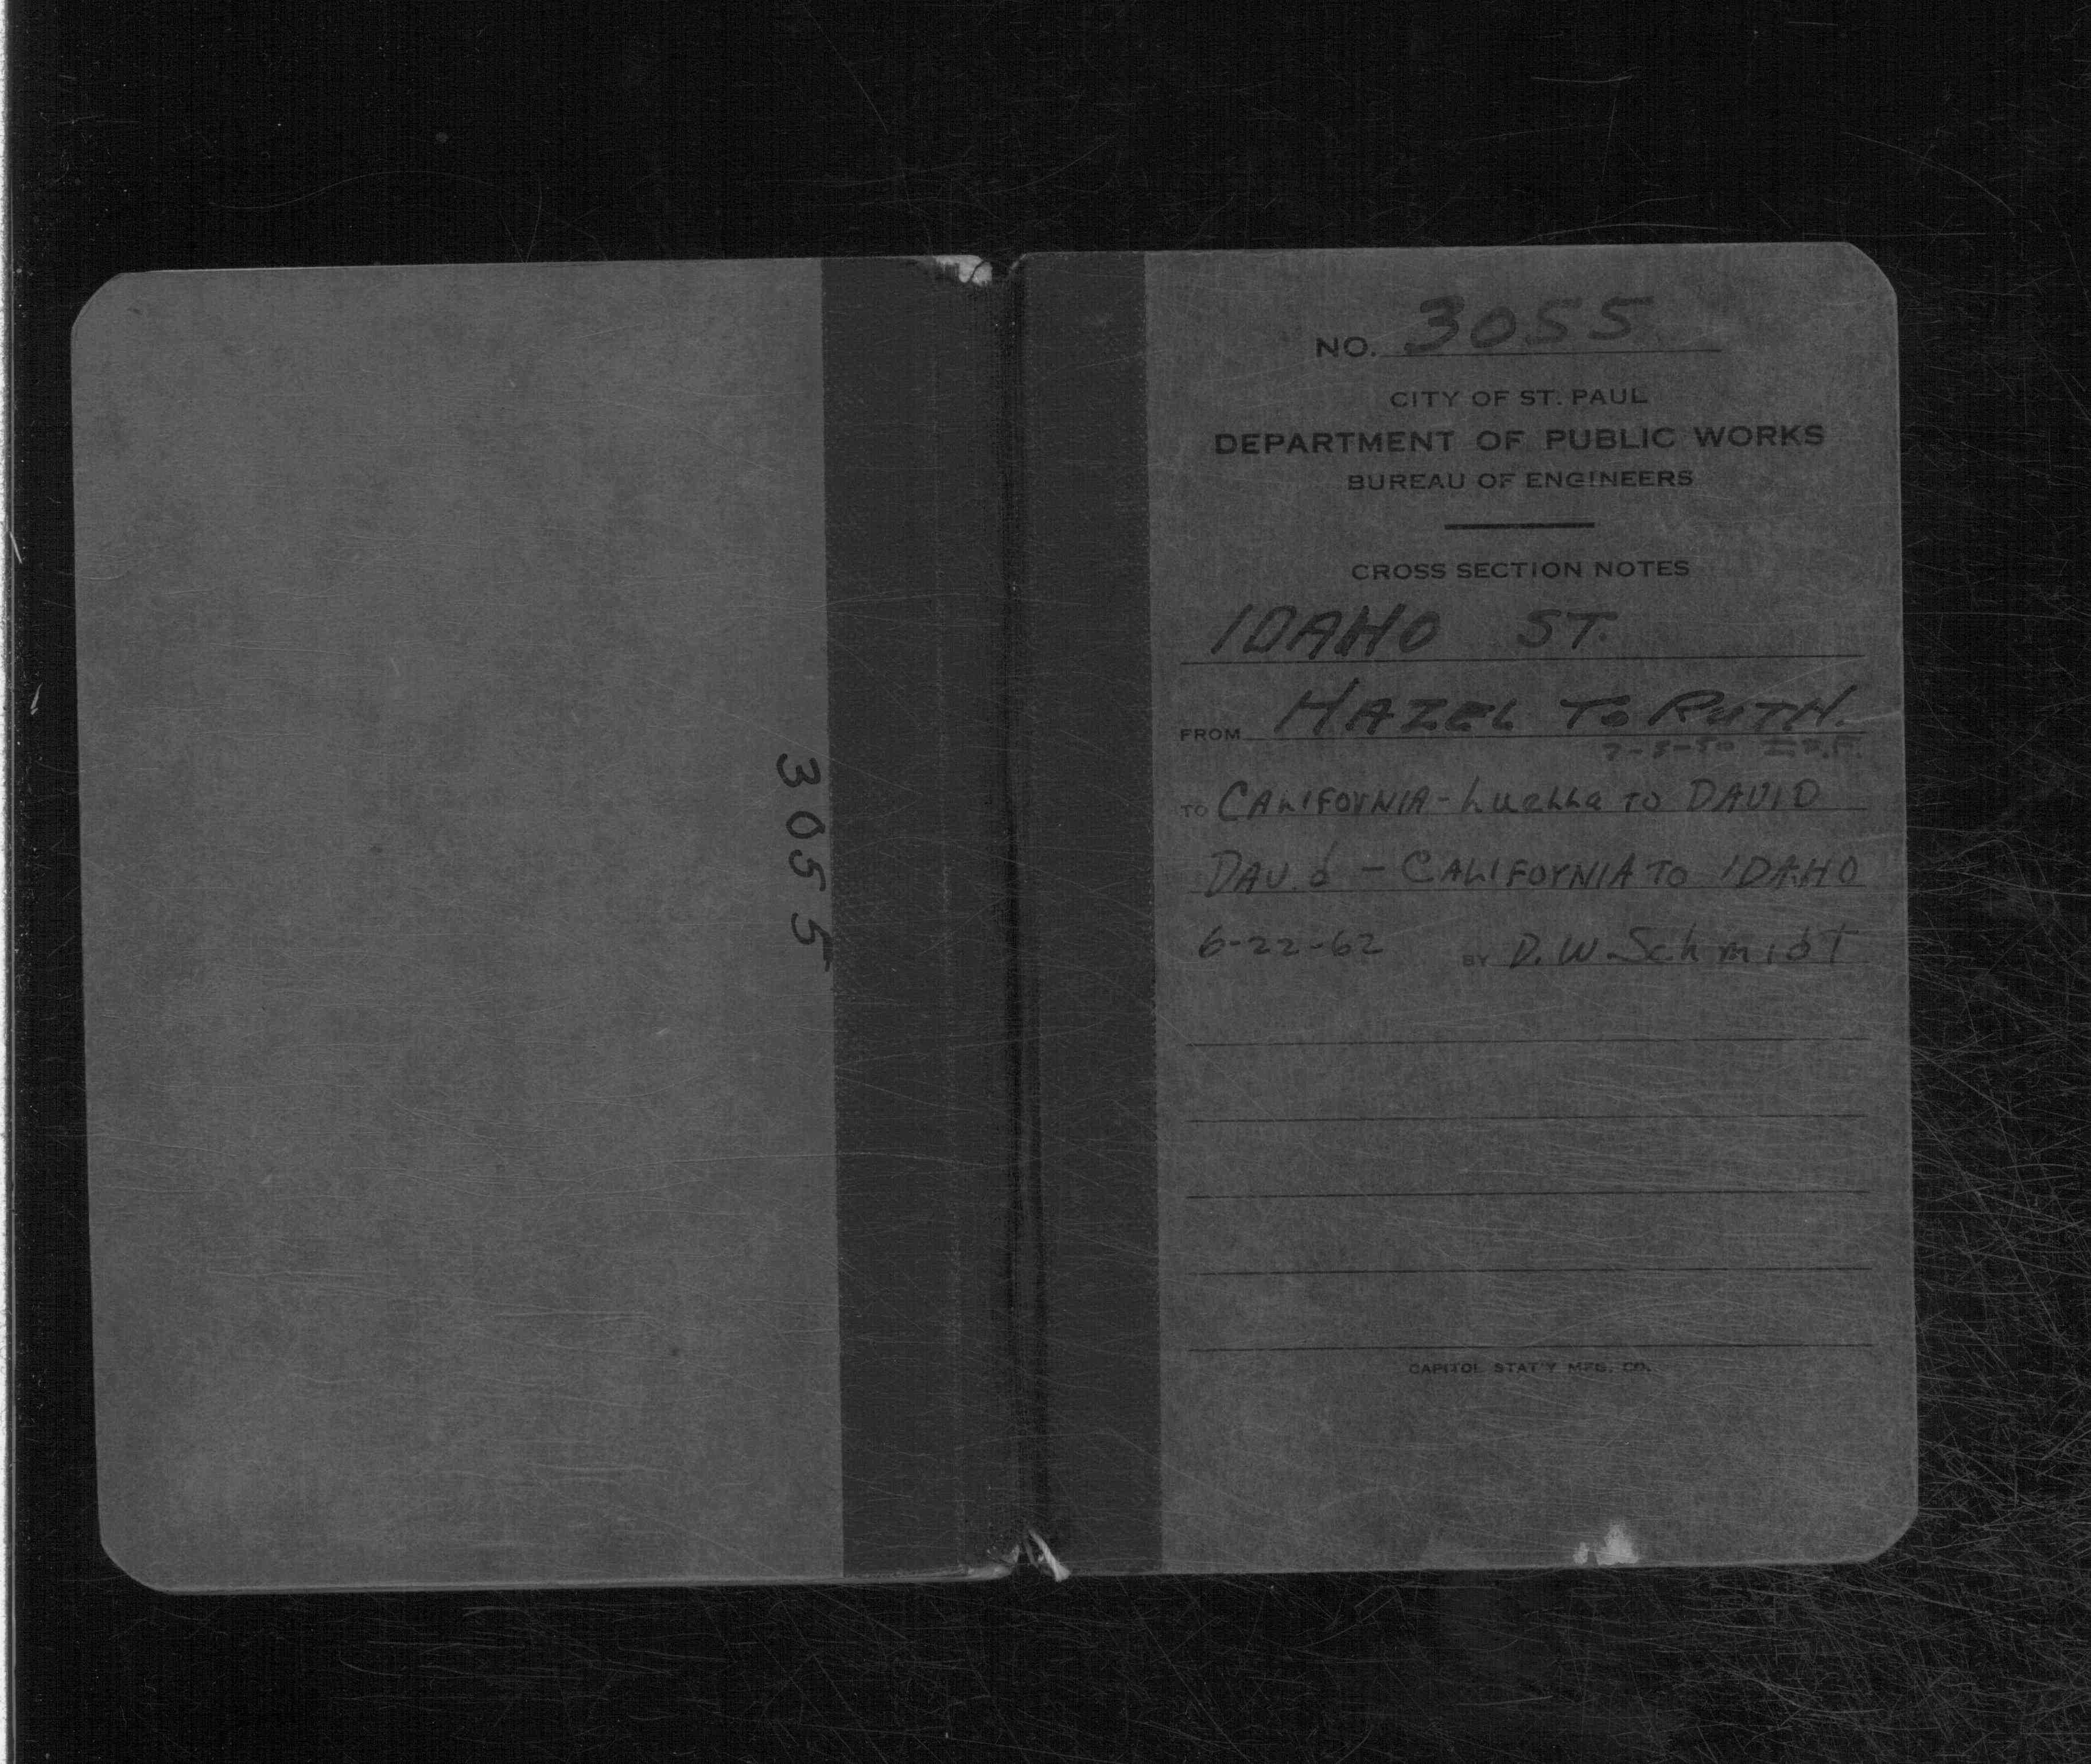 3055
NO. 3055
CITY OF ST. PAUL
DEPARTMENT OF PUBLIC WORKS
BUREAU OF ENGINEERS
CROSS SECTION NOTES
IDAHO ST.
FROM HAZEL TO RUTH.
TO CALIFORNIA - Luella TO DAVID
DAVid - CALIFORNIA TO IDAHO
6-22-62 BY D. W. Schmidt
CAPITOL STAT'Y MFG. CO.